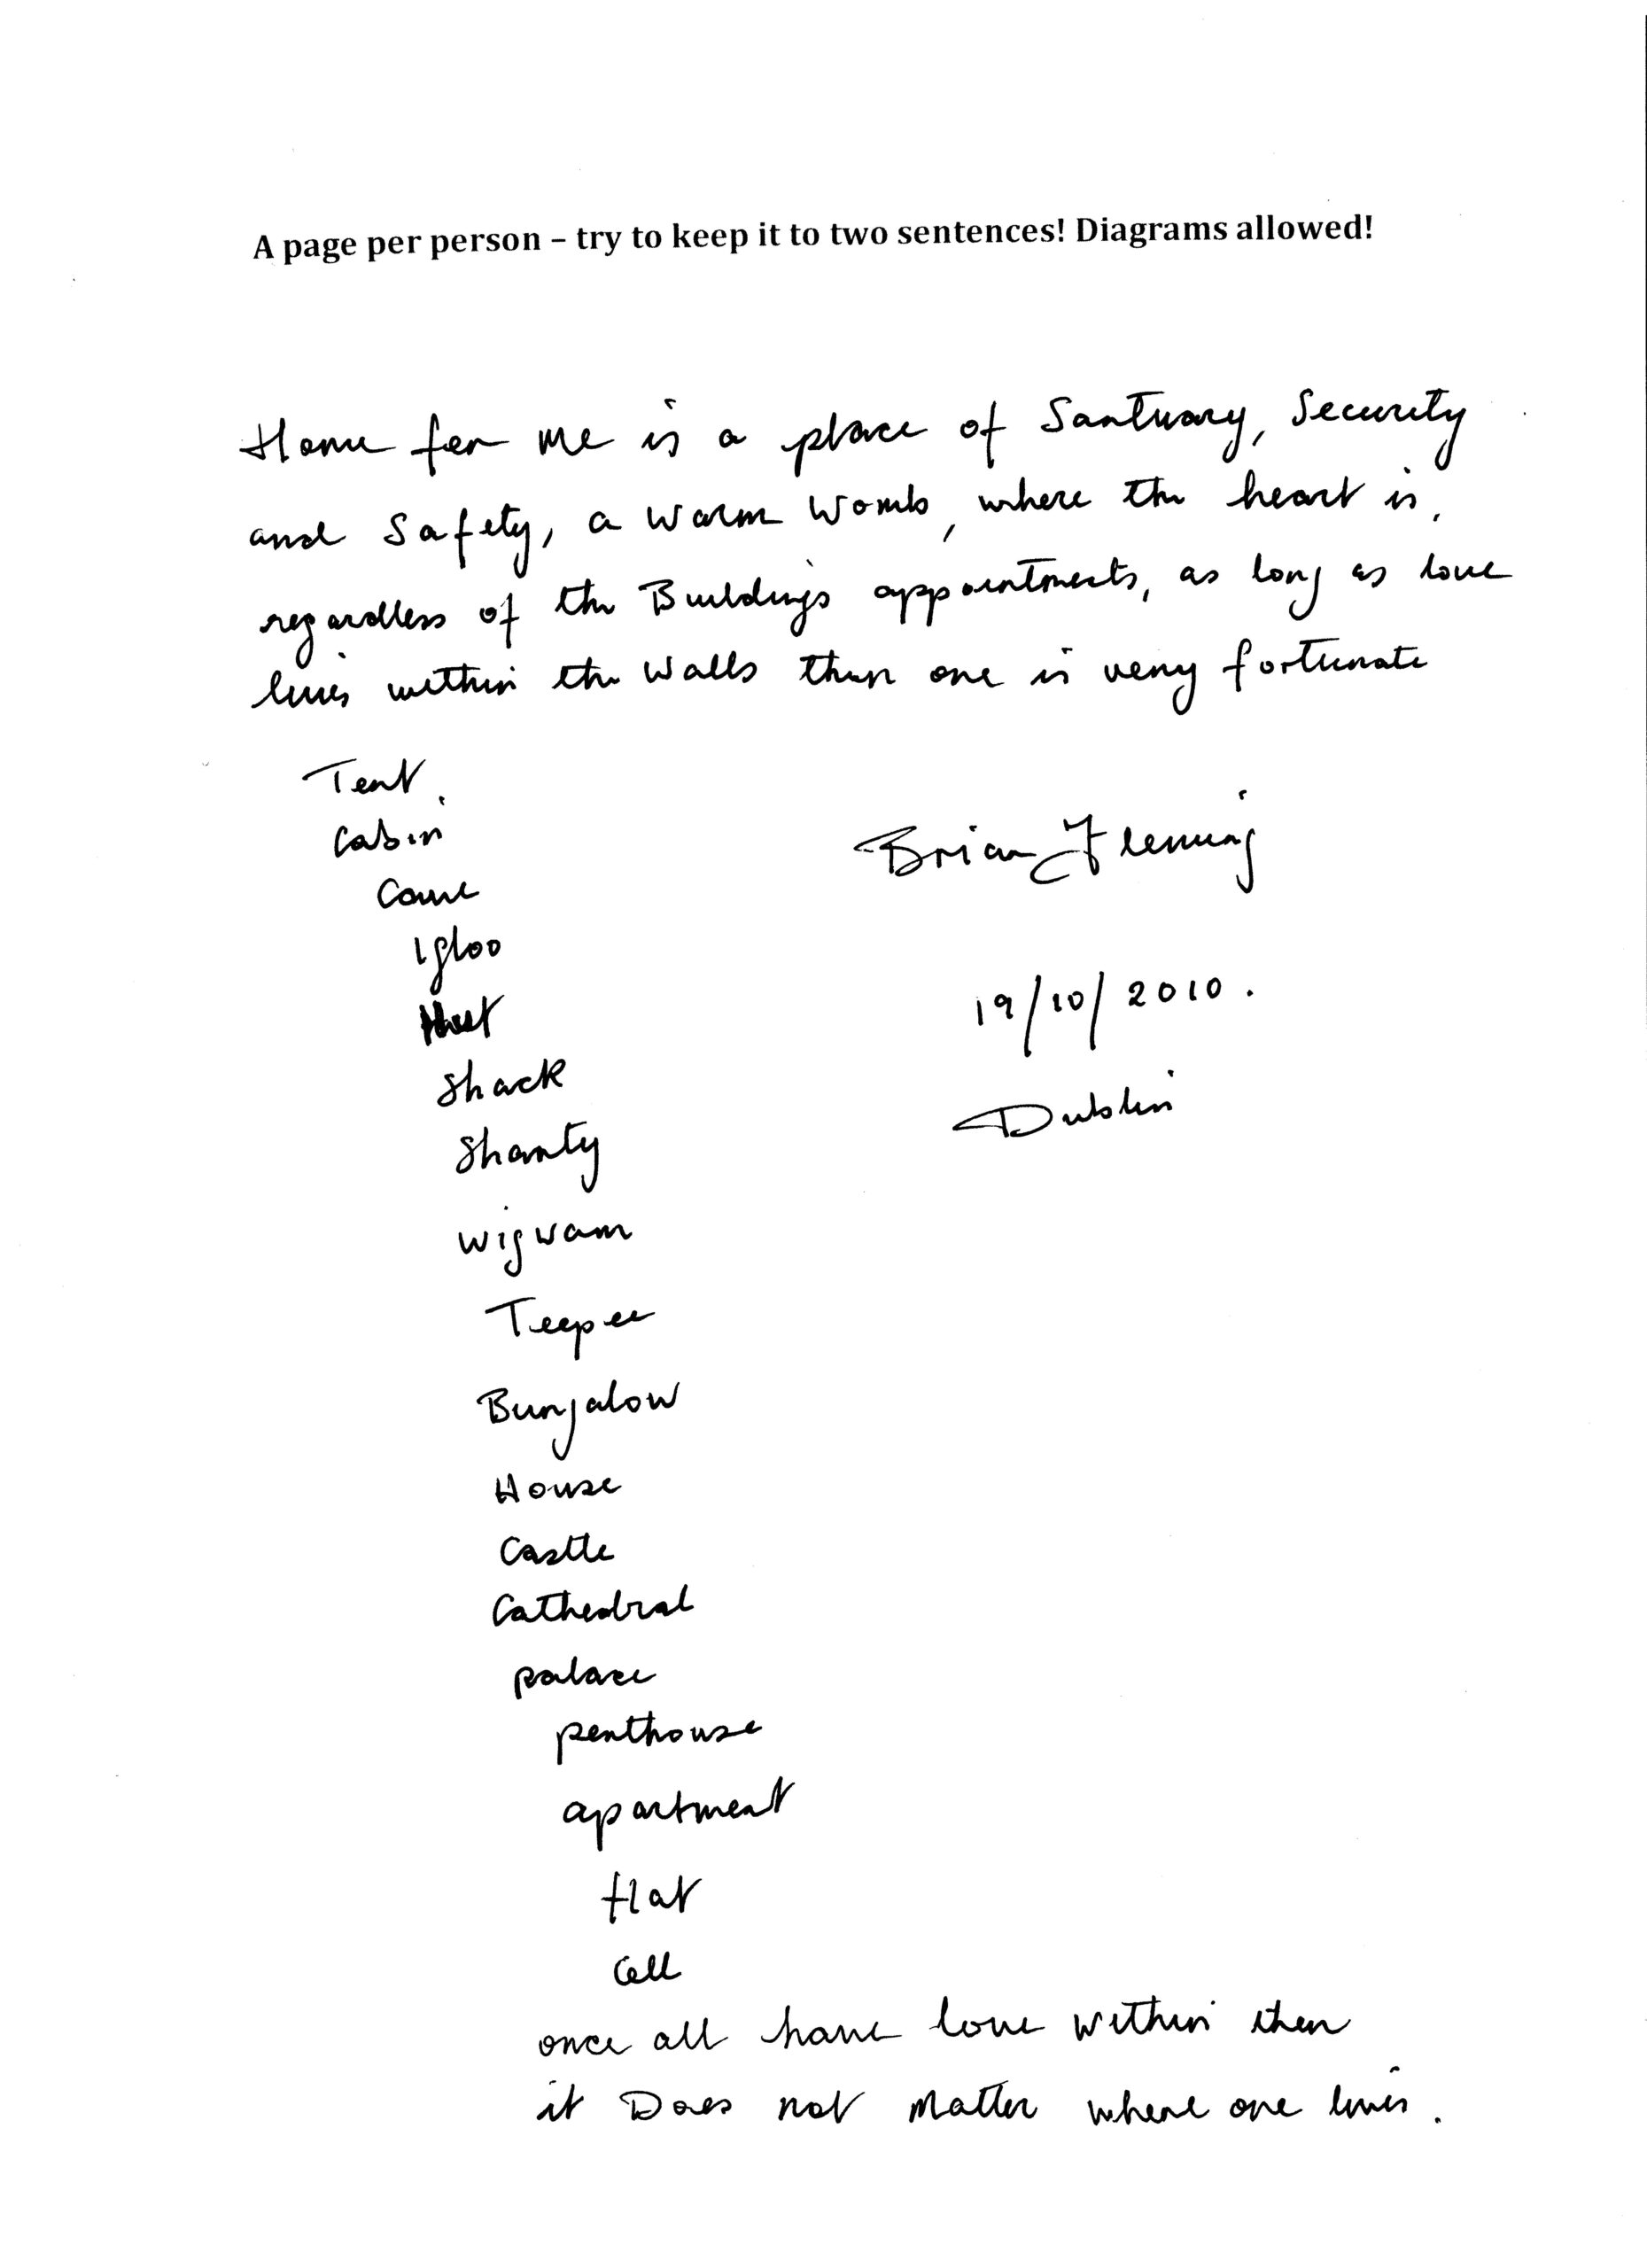 A page per person – try to keep it to two sentences! Diagrams allowed!
Home for me is a place of Santuary, Security
and Safety, a warm womb, where the heart is,
regardless of the Buildings appointments, as long as love
lives within the walls then one is very fortunate
Tent.
Cabin
Cave
Igloo
Hut
Shack
Shanty
Wigwam
Teepee
Bungalow
House
Castle
Cathedral
palace
penthouse
apartment
flat
Cell
once all have love within then
it Does not matter where one lives.
Brian Fleming
19/10/2010.
Dublin